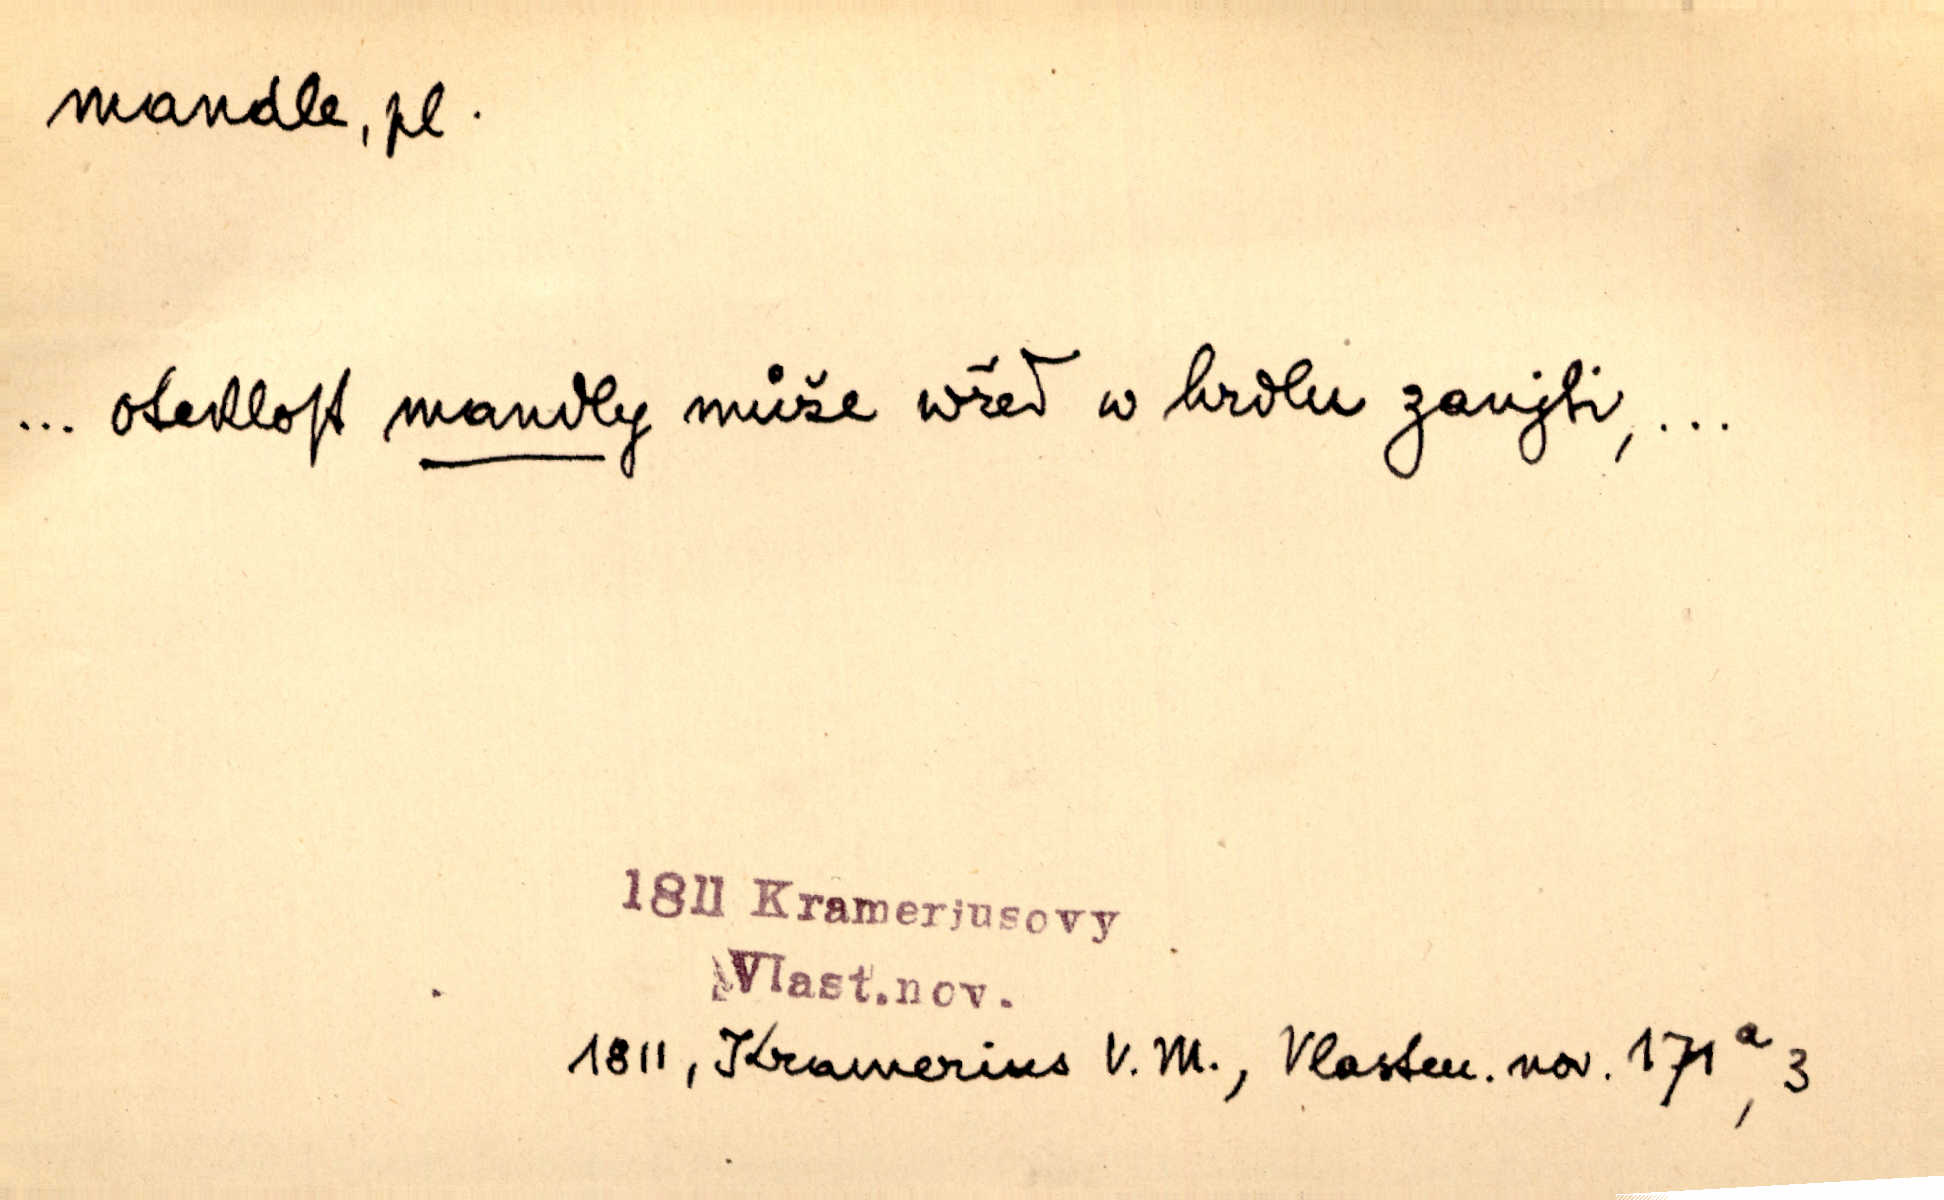 mandle, pl.
... oteklost mandly může wřed w hrdlu zanjti, ...
1811 Kramerjusovy
Vlast.nov.
1811, Kramerius V. M., Vlasten. nov. 171 a, 3